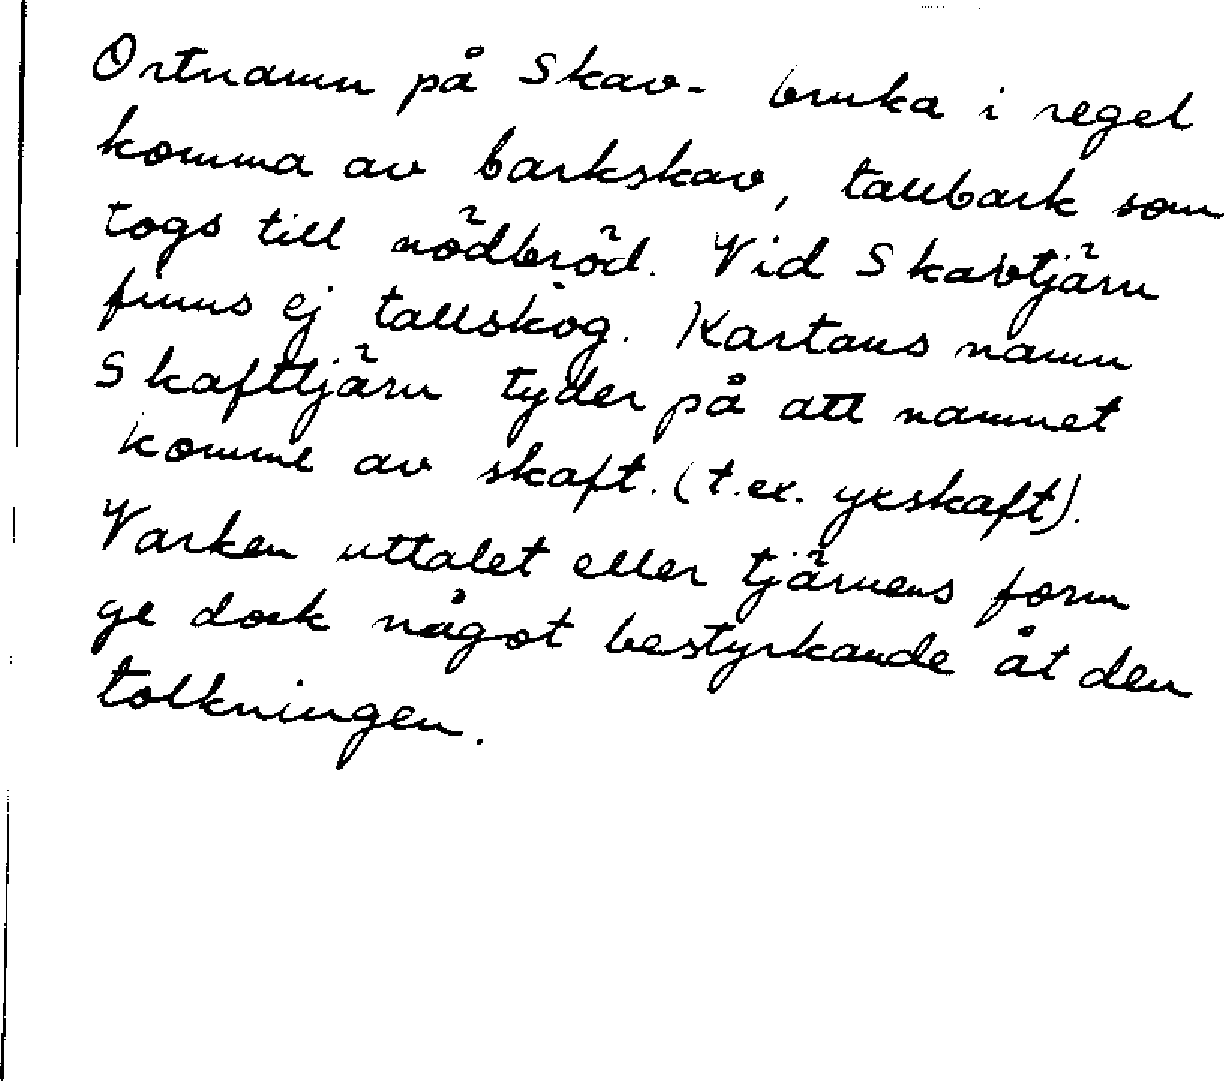 Ortnamn på Skav- bruka i regel
komma av barkskav, tallbark som
togs till nödbröd. Vid Skavtjärn
finns ej tallskog. Kartans namn
Skafttjärn tyder på att namnet
komme av skaft. (t.ex. yxskaft).
Varken uttalet eller tjärnens form
ge dock något bestyrkande åt den
tolkningen.